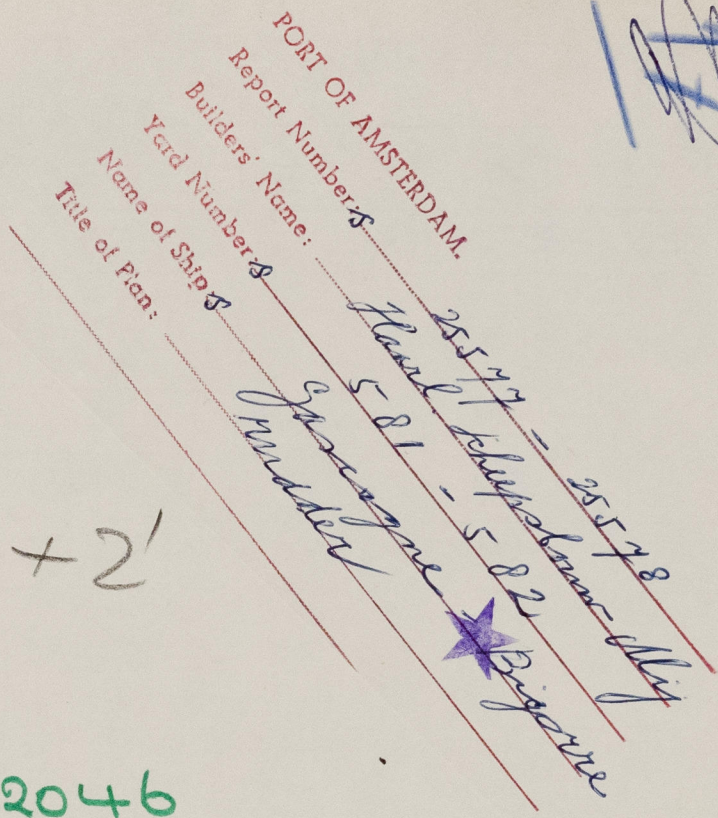 PORT OF AMSTERDAM.
Report Numbers 25577 - 25578
Builders' Name: Haarl Scheepsbouw Mij
Yard Numbers 581 - 582
Name of Ships Gascogne Bigorre
Title of Plan: rudder
+2'
2046